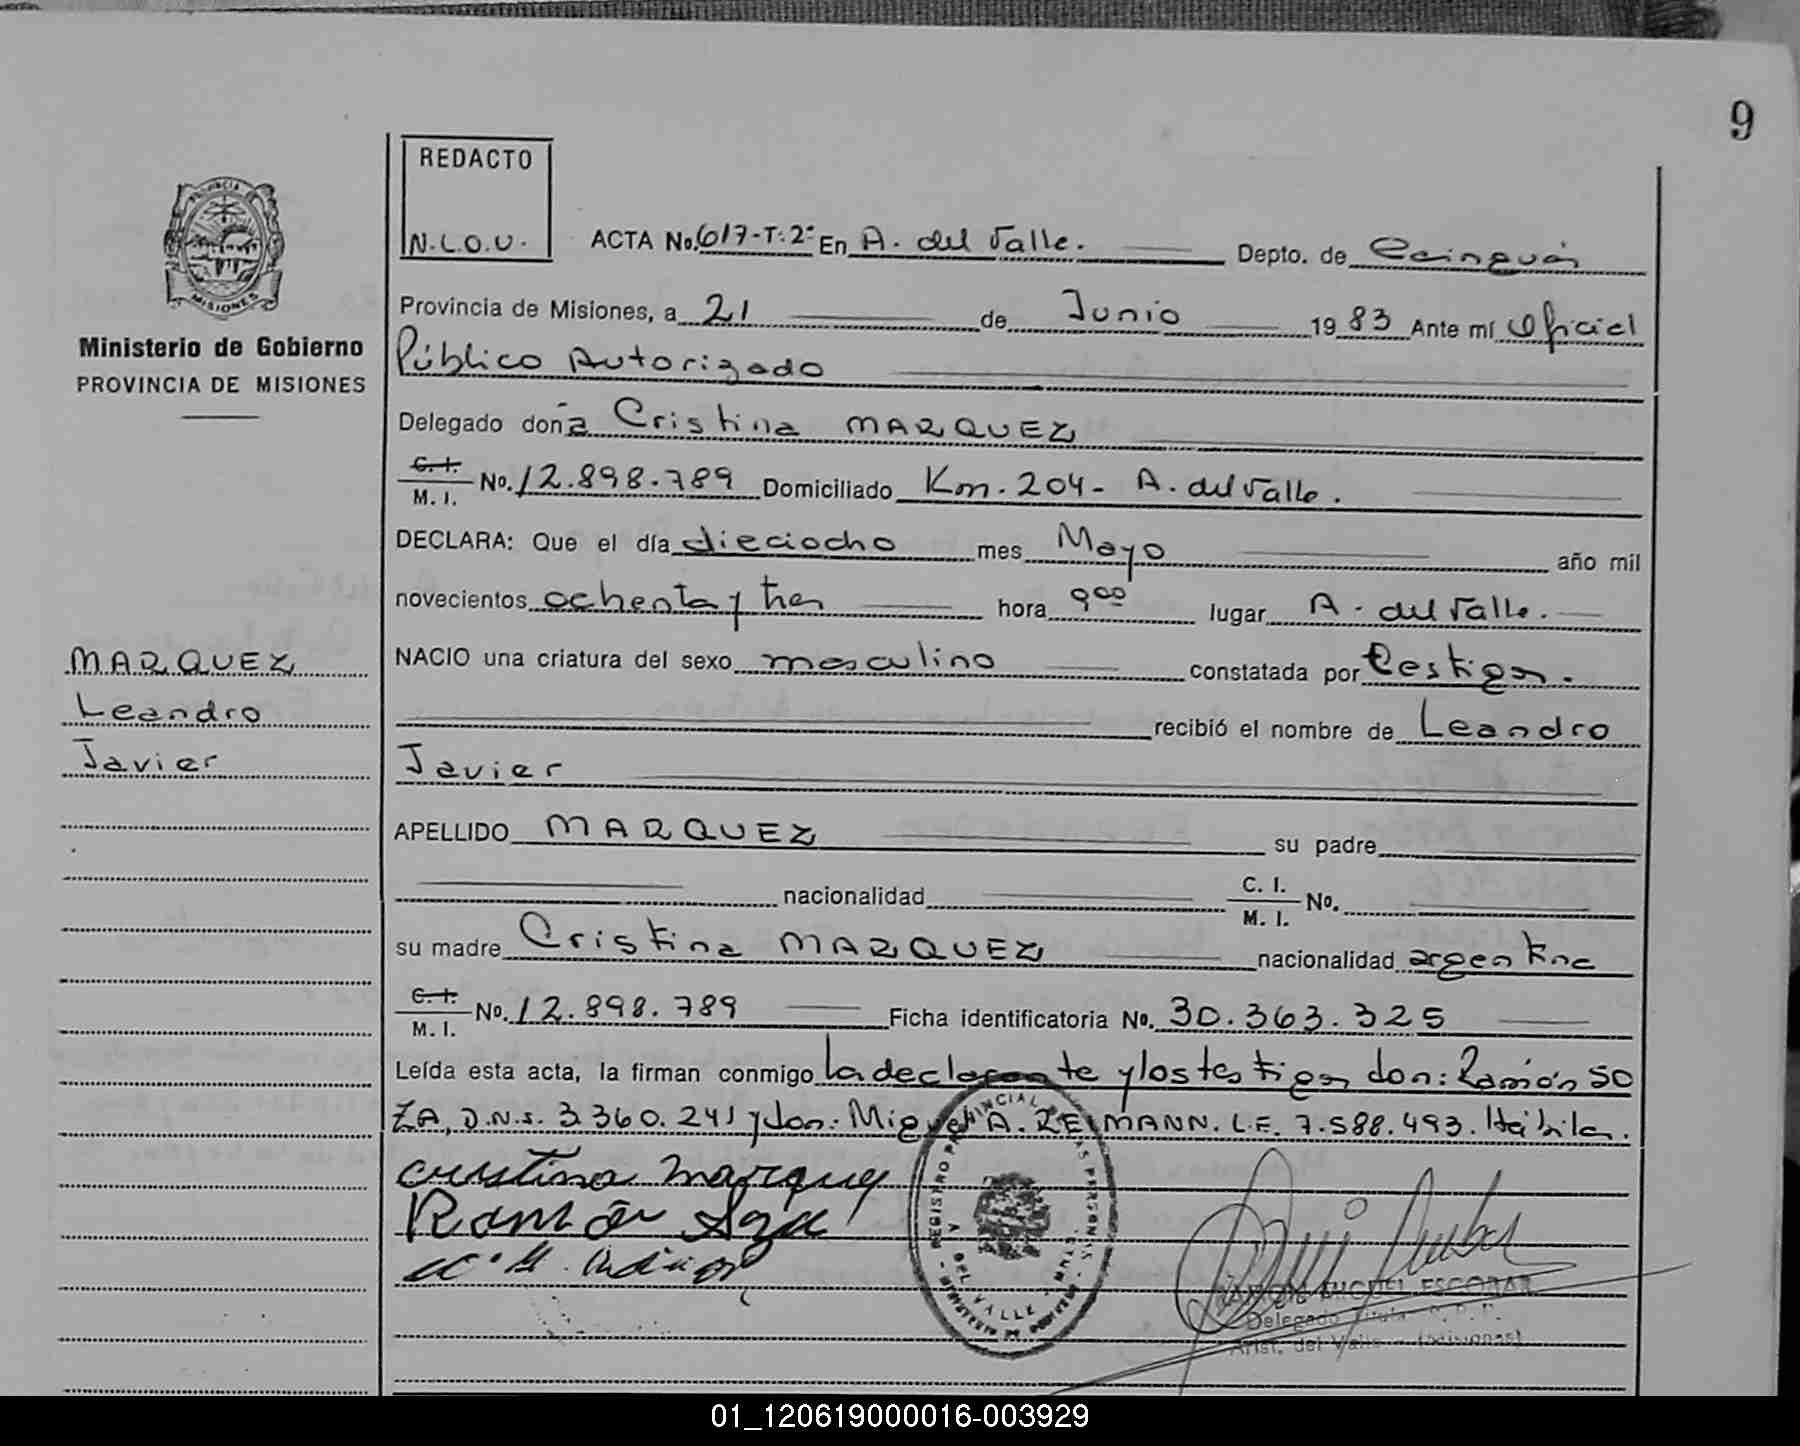 9
REDACTO
N.L.O.U.
ACTA No. 617-T:2º En A. del Valle. Depto. de Cainguás
PROVINCIA DE
MISIONES
Ministerio de Gobierno
PROVINCIA DE MISIONES
Provincia de Misiones, a 21 de Junio 1983 Ante mí Oficial
Público Autorizado
Delegado doña Cristina MARQUEZ
C.I. M.I. No. 12.898.789 Domiciliado Km. 204- A. del Valle.
DECLARA: Que el día dieciocho mes Mayo año mil
novecientos ochenta y tres hora 9 00 lugar A. del Valle.
NACIO una criatura del sexo masculino constatada por testigos.
recibió el nombre de Leandro
Javier
MARQUEZ
Leandro
Javier
APELLIDO MARQUEZ su padre
nacionalidad C. I. M. I. No.
su madre Cristina MARQUEZ nacionalidad argentina
C.I. M.I. No. 12.898.789 Ficha identificatoria No. 30.363.325
Leída esta acta, la firman conmigo la declarante y los testigos don: Ramón SO
ZA, D.N.I. 3.360.241 y don: Miguel A. REIMANN. L.E. 7.588.493. Hábiles.
cristina marquez
Ramón Soza
REGISTRO PROVINCIAL DE LAS PERSONAS
A DEL VALLE - MNES.
RAMON MIGUEL ESCOBAR
Delegado Titular R. P. P.
Arist. del Valle - (Misiones)
01_120619000016-003929